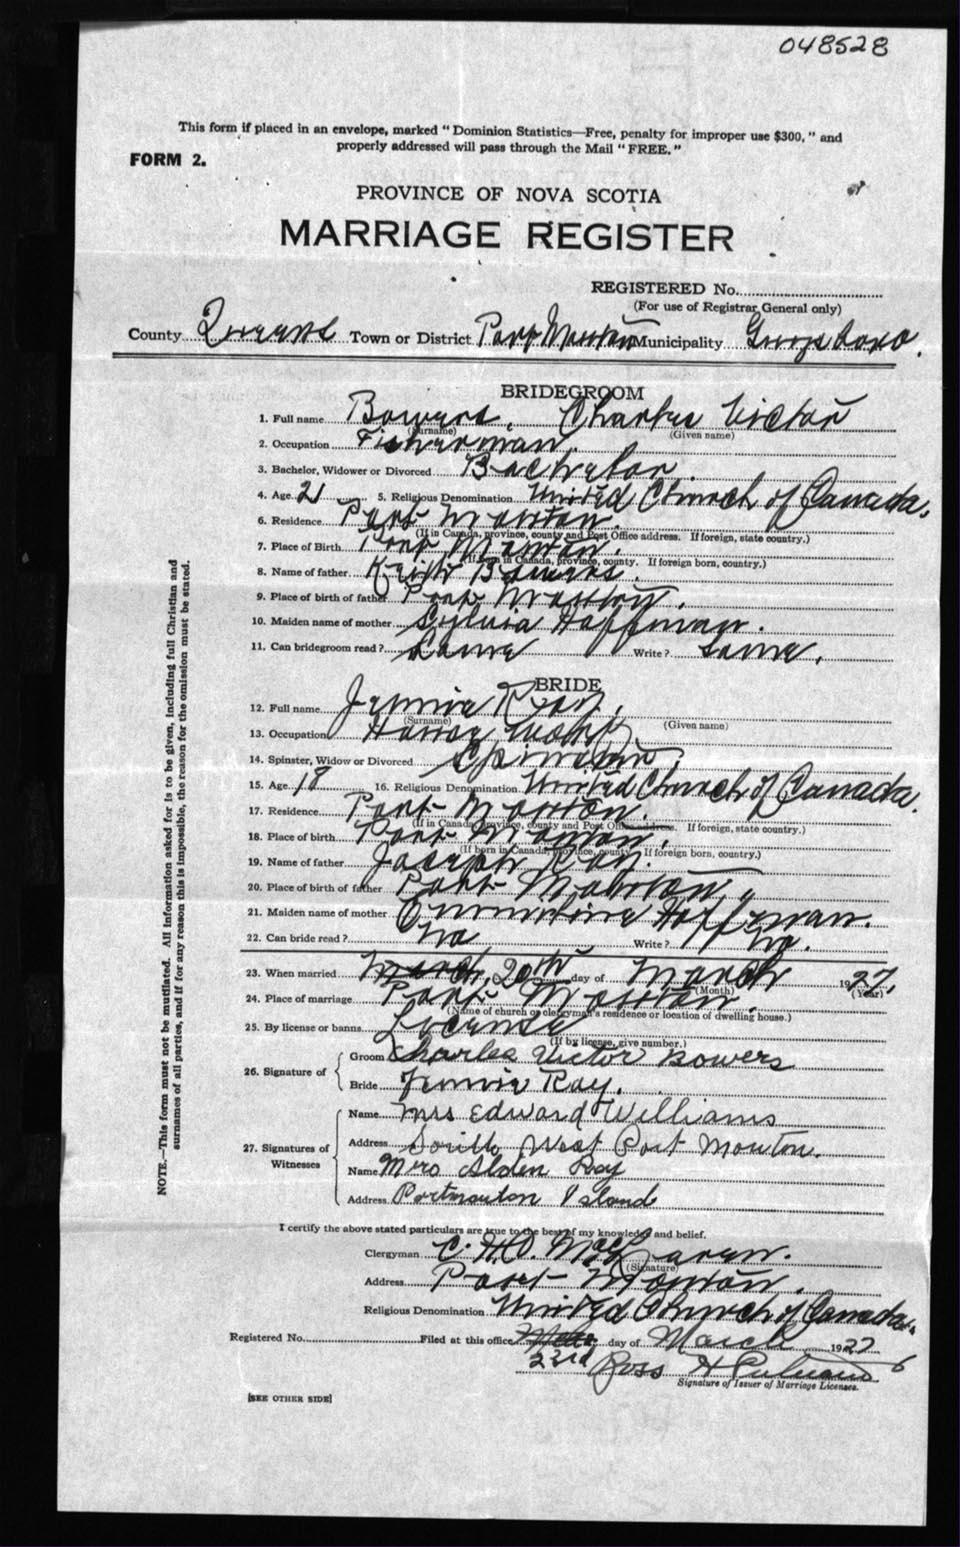 048528
This form if placed in an envelope, marked "Dominion Statistics—Free, penalty for improper use $300," and
properly addressed will pass through the Mail "FREE."
FORM 2.
PROVINCE OF NOVA SCOTIA
MARRIAGE REGISTER
REGISTERED No.
(For use of Registrar General only)
County Queens Town or District Port Mouton Municipality
BRIDEGROOM
1. Full name Bowers, Charles Victor
(Surname) (Given name)
2. Occupation Fisherman.
3. Bachelor, Widower or Divorced Bachelor.
4. Age 21 5. Religious Denomination United Church of Canada.
6. Residence Port Mouton.
(If in Canada, province, county and Post Office address. If foreign, state country.)
7. Place of Birth Port Mouton.
(If born in Canada, province, county. If foreign born, country.)
8. Name of father Keith Bowers.
9. Place of birth of father Port Mouton.
10. Maiden name of mother Sylvia Hoffman.
11. Can bridegroom read? Same Write? Same.
BRIDE
12. Full name Jennie Ray.
(Surname) (Given name)
13. Occupation
14. Spinster, Widow or Divorced Spinster.
15. Age 18 16. Religious Denomination United Church of Canada.
17. Residence Port Mouton.
(If in Canada, province, county and Post Office address. If foreign, state country.)
18. Place of birth Port Mouton.
(If born in Canada, province, county. If foreign born, country.)
19. Name of father Joseph Ray.
20. Place of birth of father Port Mouton.
21. Maiden name of mother Hoffman.
22. Can bride read? No Write? No.
23. When married March, 20th day of March 1927.
(Month) (Year)
24. Place of marriage Port Mouton.
(Name of church or clergyman's residence or location of dwelling house.)
25. By license or banns License
(If by license, give number.)
26. Signature of
Groom Charles Victor Bowers
Bride Jennie Ray.
27. Signatures of Witnesses
Name Mrs Edward Williams
Address South West Port Mouton.
Name Mrs Alden Ray
Address Portmouton Island
I certify the above stated particulars are true to the best of my knowledge and belief.
Clergyman C.
(Signature)
Address Port Mouton.
Religious Denomination United Church of Canada.
Registered No. Filed at this office day of March 1927
23rd Ross H
Signature of Issuer of Marriage Licenses.
[SEE OTHER SIDE]
NOTE.—This form must not be mutilated. All information asked for is to be given, including full Christian and
surnames of all parties, and if for any reason this is impossible, the reason for the omission must be stated.